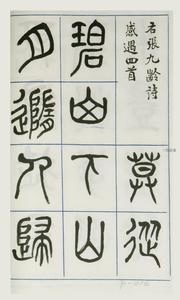 右張九齡詩
感遇四首
莫從
碧山下山
月隨人歸